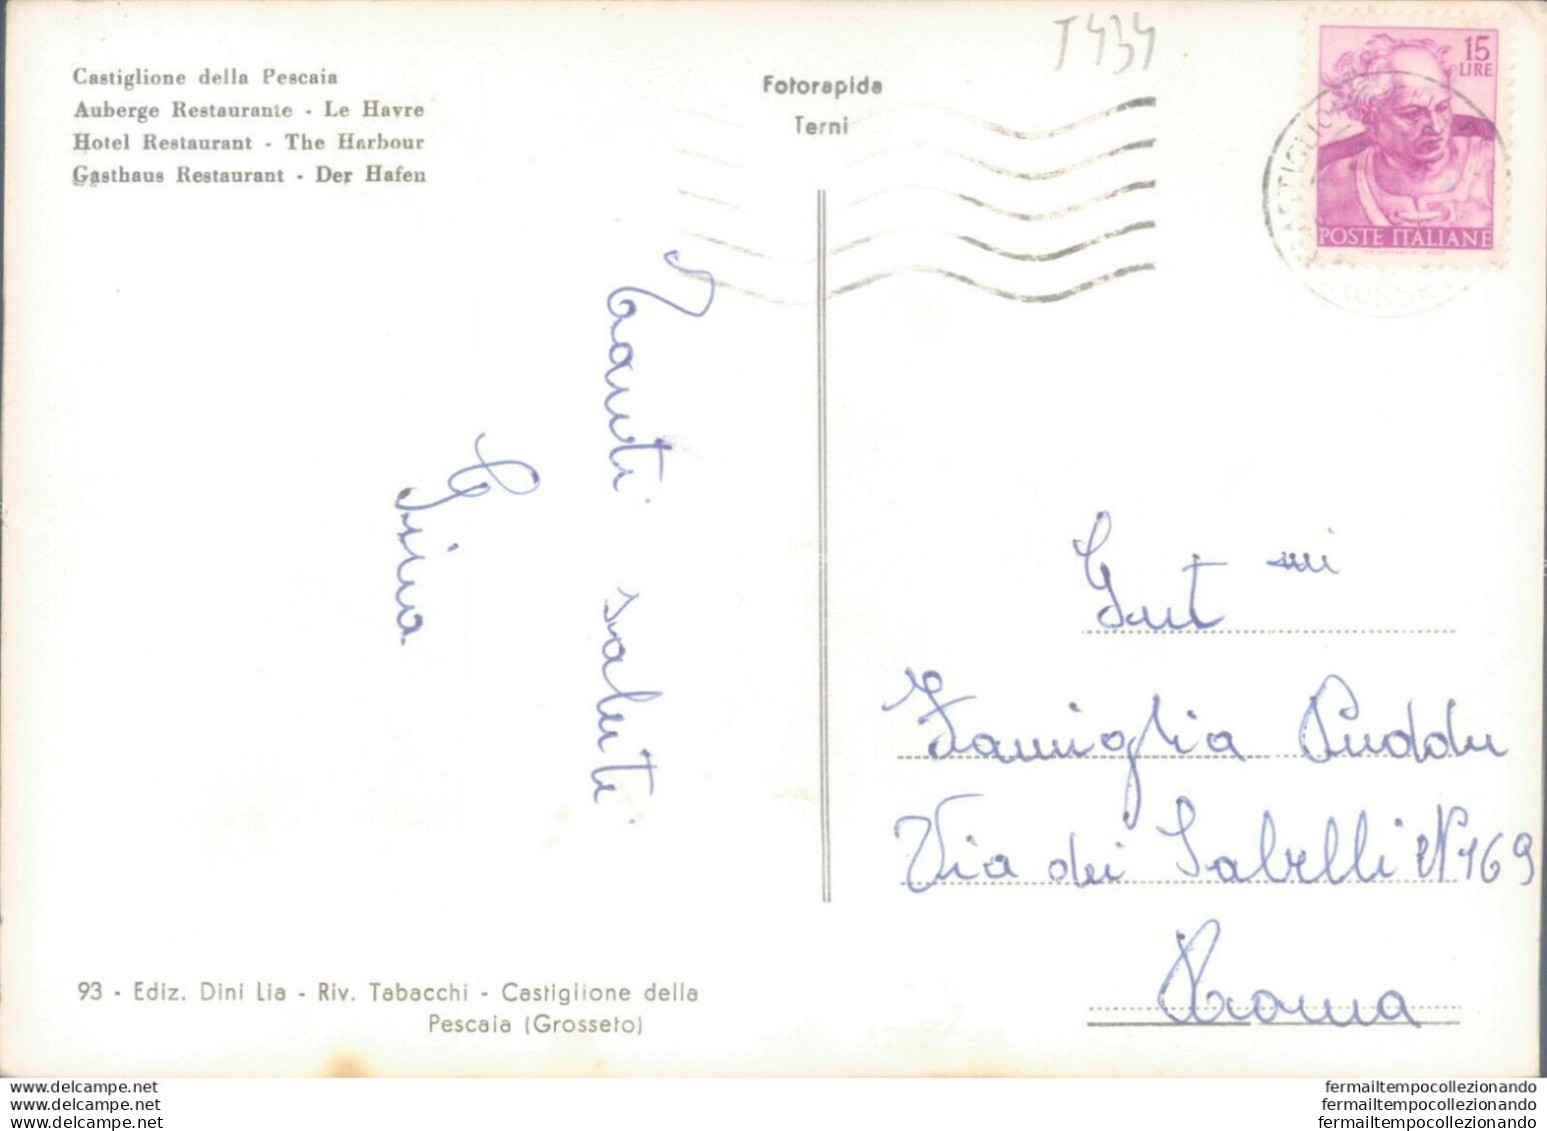 Castiglione della Pescaia
Auberge Restaurante - Le Havre
Hotel Restaurant - The Harbour
Gasthaus Restaurant - Der Hafen
Fotorapida
Terni
T434
15
LIRE
POSTE ITALIANE
Tanti saluti
Gina
Gent mi
Famiglia Puddu
Via dei Sabelli N 169
Roma
93 - Ediz. Dini Lia - Riv. Tabacchi - Castiglione della
Pescaia (Grosseto)
www.delcampe.net
www.delcampe.net
www.delcampe.net
fermailtempocollezionando
fermailtempocollezionando
fermailtempocollezionando